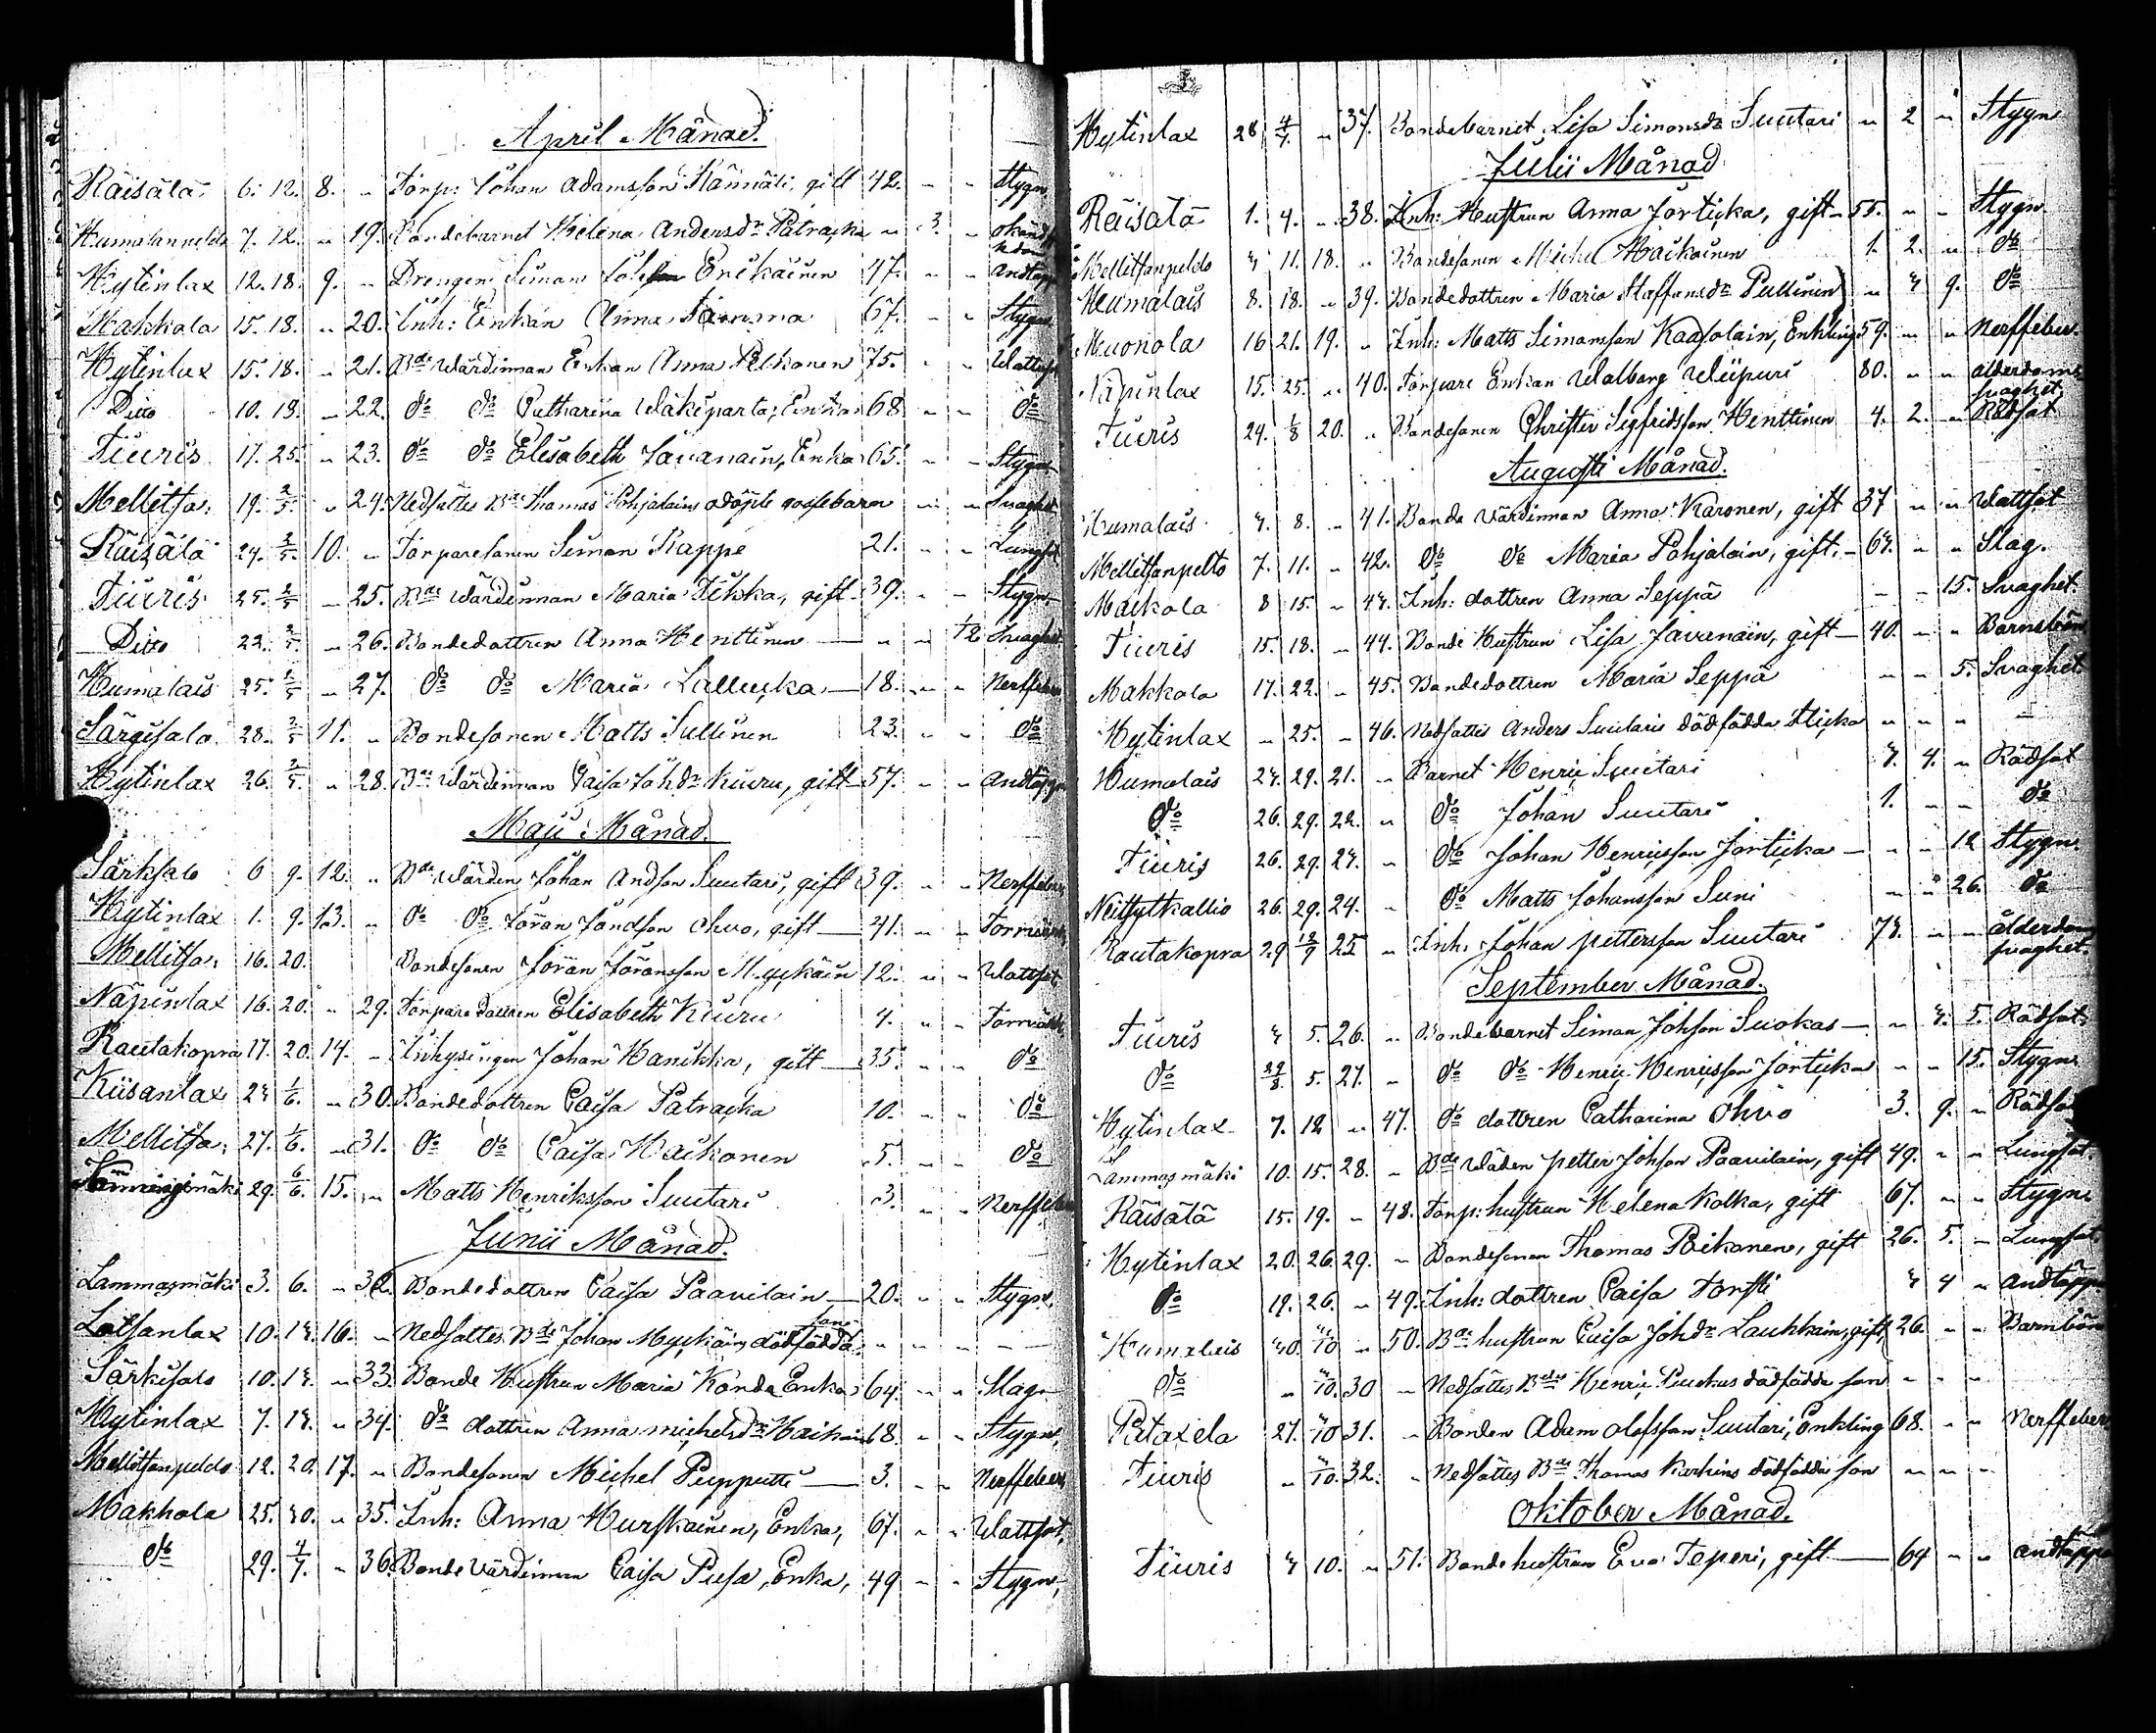 April Månad.
Räisälä 6. 12. 8. " Torp: Johan Adamsson Hännäli, gift 42. " " Stygn
Humalanpeldo 7. 12. " 19. Bondebarnet Helena Andersdr Patracka " 3. " okänd
Hytinlax 12. 18. 9. " Drengen Simon Enckäinen 47. " " Andtäppa
Makkola 15. 18. " 20. Inh: Enkan Anna 67. " " Stygn
Hytinlax 15. 18. " 21. Bde Wärdinnan Enkan Anna Pelkonen 75. " " Wattusot
Ditto 10. 18. " 22. do do Catharina Wäkiparta, Enka 68 " " do
Tiuris 17. 25. " 23. do do Elisabeth Javanain, Enka 65. " " Stygn
Mellitsa: 19. 2/5. " 24. Nedsattes Bde Thomas Pohjalains odöpte gossebarn " " Svaghet
Räisälä 24. 2/5. 10. " Torparesonen Simon Rappe 21. " " Lungsot
Tiuris 25. 2/5 " 25. Bde Wärdinnan Maria Tikka, gift 39. " " Stygn
Ditto 22. 2/5. " 26. Bondedottren Anna Henttinen " " Svaghet
Humalais 25. 2/5 " 27. do do Maria Lallucka 18. " " Nerffeber
Särgisalo 28. 2/5 11. " Bondesonen Matts Sullinen 23. " " do
Hytinlax 26. 2/5. " 28. Bde Wärdinnan Caisa Johdr Kiuru, gift 57. " " Andtäppa
Maji Månad.
Särkisalo 6 9. 12. " Bde Wärden Johan Andson Suutari, gift 39. " " Nerffeber
Hytinlax 1. 9. 13. " do do Jöran Ohvo, gift 41. " " Torrvärk
Mellitsa: 16. 20. Bondesonen Jöran Jöransson Myckäin 12. " " Wattsot
Näpinlax 16. 20. " 29. Torpare dottren Elisabeth Kiuru 4. " " Torrvärk
Rautakopra 17. 20. 14. " Inhysingen Johan Hanikka, gift 35. " " do
Kiisanlax 23 1/6. " 30. Bondedottren Caisa Patracka 10. " " do
Mellitsa: 27. 1/6. " 31. do do Caisa Haikonen 5. " " do
29. 6/6. 15. " Matts Henriksson Suutari 3. " " Nerffeber
Junii Månad.
Lammasmäki 3. 6. " 32. Bondedottren Caisa Paavilain 20. " " Stygn
Lotsanlax 10. 13. 16. " Nedsattes Bde Johan Myckäins dödfödda son " " "
Särkisalo 10. 13. " 33. Bonde Hustrun Maria Konda Enka 64. " " Slag
Hytinlax 7. 13. " 34. do dottren Anna Michelsdr Haikoin 68. " " Stygn
Mellitsanpeldo 12. 20. 17. " Bondesonen Michel Pupputti 3. " " Nerffeber
Makkola 25. 30. " 35. Inh: Anna Hurskainen, Enka, 67. " " Wattsot
do 29. 4/7. " 36. Bonde Värdinnan Caisa Pusa, Enka, 49 " " Stygn
Hytinlax 28 4/7. " 37. Bondebarnet Lisa Simonsdr Suutari " 2 " Stygn
Julii Månad
Räisälä 1. 4. " 38. Inh: Hustrun Anna Jorticka, gift 55. " " Stygn
Mellitsanpeldo 3 11. 18. " Bondesonen Michel Haikoinen 1. 2. " do
Humalais 8. 18. " 39. Bondedottren Maria Staffansdr Pullinen " 3 9. do
Muonola 16 21. 19. " Inh: Matts Simonsson Kaasolain, Enkling 59. " " Nerffeber
Näpinlax 15. 25. " 40. Torpare Enkan Walborg Wiipuri 80. " " ålderdoms svaghet
Tiuris 24. 1/8 20. " Bondesonen Christer Sigfridsson Henttinen 4. 2. " Rödsot
Augusti Månad.
Humalais 3. 8. " 41. Bonde värdinnan Anna Karonen, gift 37 " " Wattsot
Mellitsanpelto 7. 11. " 42. do do Maria Pohjalain, gift. 63. " " Slag.
Mackola 8 15. " 43. Inh: dottren Anna Seppä " " 15. Svaghet.
Tiuris 15. 18. " 44. Bonde Hustrun Lisa Javanain, gift 40. " " Barnsbörd
Makkola 17. 22. " 45. Bondedottren Maria Seppä " " 5. Svaghet
Hytinlax " 25. " 46. Nedsattes Anders Suutaris dödfödda flicka " " "
Humalais 23. 29. 21. " Barnet Henric Suutari 3. 4. " Rödsot
do 26. 29. 22. " do Johan Suutari 1. " " do
Tiuris 26. 29. 23. " do Johan Henricsson Jorticka " " 12 Stygn
Neitsytkallio 26. 29. 24. " do Matts Johansson Suni " " 26. do
Rautakopra 29 12/9 25 " Inh: Johan Pettersson Suutari 73. " " ålderdoms svaghet.
September Månad.
Tiuris 3 5. 26. " Bondebarnet Simon Johson Suokas " 3. 5. Rödsot
do 29/8. 5. 27. " do do Henric Henricsson Jorticka " " 15. Stygn
Hytinlax 7. 12 " 47. do dottren Catharina Ohvo 3. 9. " Rödsot
Lammasmäki 10. 15. 28. " Bde Wäden Petter Johson Paavilain, gift 49. " " Lungsot.
Räisälä 15. 19. " 48. Torp: hustrun Helena Kolka, gift 67. " " Stygn
Hytinlax 20. 26. 29. " Bondesonen Thomas Poikonen, gift 26. 5. " Lungsot
do 19. 26. " 49. Inh: dottren Caisa Torsti 3 4 " andtäppa
Humalais 30. 3/10 " 50. Bde hustrun Caisa Johdr Laukkain, gift 26. " " Barnbörd
do " 3/10. 30 " Nedsattes Bdes Henric Puukus dödfödde son " " "
Pataxela 27. 3/10 31. " Bonden Adam Olofsson Suutari, Enkling 68. " " Nerffeber
Tiuris " 3/10. 32. " Nedsattes Bdes Thomas Karhins dödfödde son " " "
Oktober Månad.
Tiuris 3 10. " 51. Bondehustrun Eva Teperi, gift 64 " " andtäppa